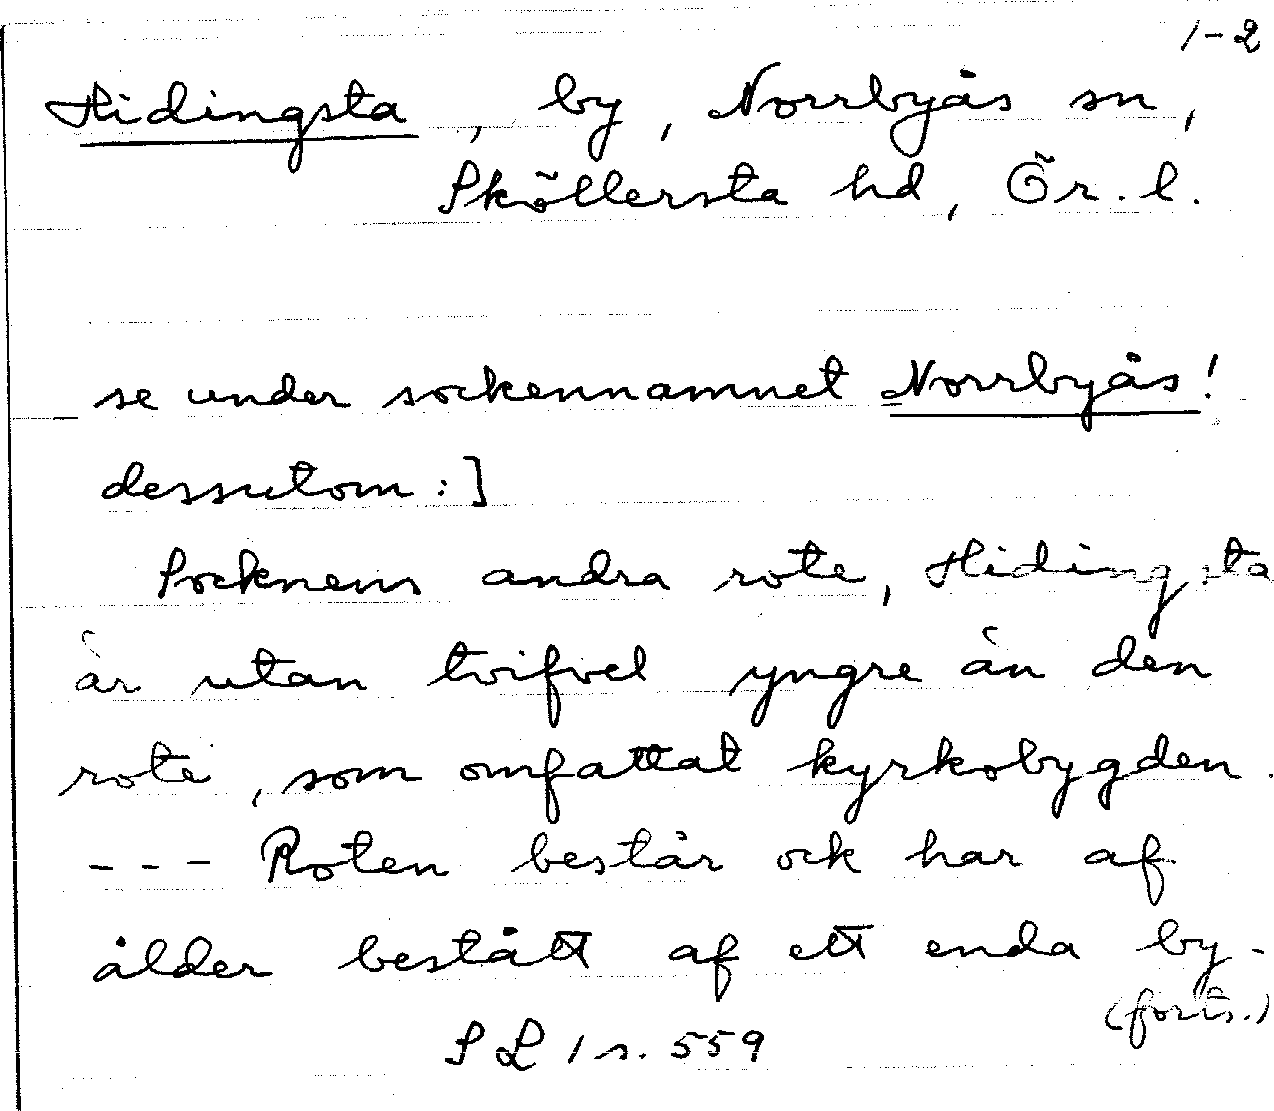 1-2
Hidingsta, by, Norrbyås sn,
Sköllersta hd, Ör. l.
se under sockennamnet Norrbyås!
dessutom:]
Socknens andra rote, Hidingsta
är utan tvifvel yngre än den
rote, som omfattat kyrkobygden.
--- Roten består ock har af
ålder bestått af ett enda by-
(forts.)
SL 1 s. 559